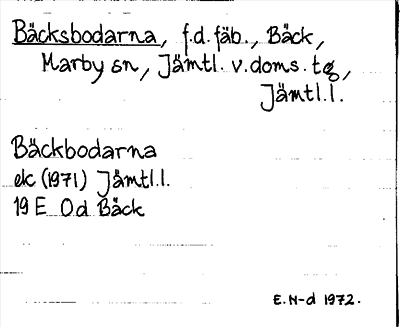 Bäcksbodarna, f.d. fäb., Bäck,
Marby sn, Jämtl. v. doms. tg,
Jämtl. l.
Bäckbodarna
ek (1971) Jämtl. l.
19 E Od Bäck
E. N-d 1972.